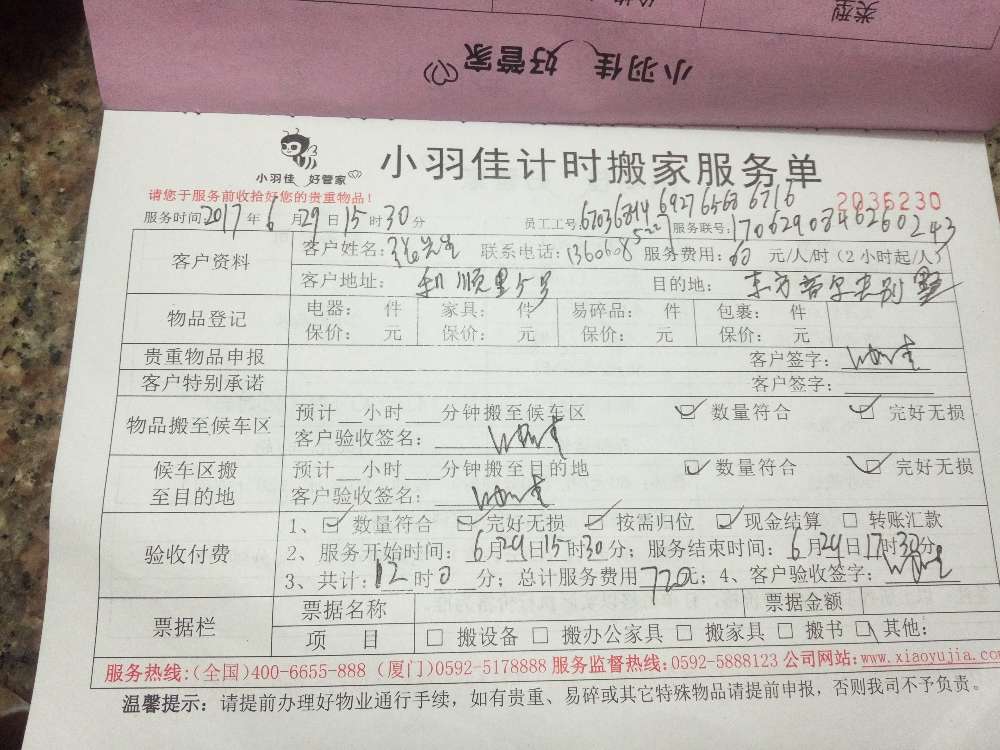 类型
小羽佳 好管家
小羽佳 好管家
小羽佳计时搬家服务单
请您于服务前收拾好您的贵重物品!
2036230
服务时间2017年6月29日15时30分 员工工号: 服务联号:
客户资料 客户姓名: 先生 联系电话: 服务费用:60元/人/时(2小时起/人)
客户地址:和顺里5号 目的地:东方 别墅
物品登记 电器: 件 家具: 件 易碎品: 件 包裹: 件
保价: 元 保价: 元 保价: 元 保价: 元
贵重物品申报 客户签字:
客户特别承诺 客户签字:
物品搬至候车区 预计__小时___分钟搬至候车区 ☑ 数量符合 ☑ 完好无损
客户验收签名:
候车区搬至目的地 预计__小时___分钟搬至目的地 ☑ 数量符合 ☑ 完好无损
客户验收签名:
验收付费 1、☑ 数量符合 ☑ 完好无损 ☑ 按需归位 ☑ 现金结算 □ 转账汇款
2、服务开始时间:6月29日15时30分;服务结束时间:6月29日17时30分
3、共计:12时0分;总计服务费用720元;4、客户验收签字:
票据栏 票据名称 票据金额
项 目 □ 搬设备 □ 搬办公家具 □ 搬家具 □ 搬书 □ 其他:
服务热线:(全国)400-6655-888 (厦门)0592-5178888 服务监督热线:0592-5888123 公司网站:www.xiaoyujia.com
温馨提示:请提前办理好物业通行手续,如有贵重、易碎或其它特殊物品请提前申报,否则我司不予负责。